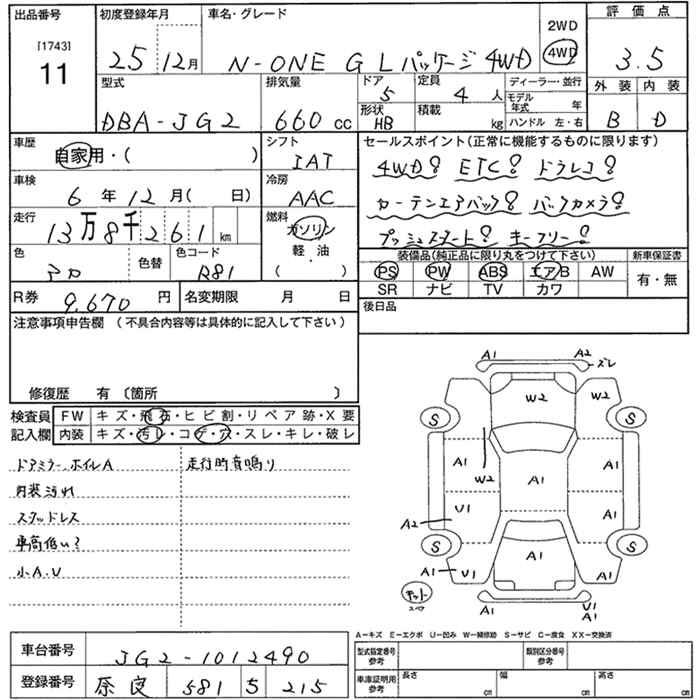 出品番号 初度登録年月 車名・グレード 評価点
[1743]
11
25 12月 N-ONE G Lパッケージ 4WD 2WD 4WD 3.5
型式 排気量 ドア 5 定員 4人 ディーラー・並行 外装 内装
モデル年式 年
DBA-JG2 660cc 形状 HB 積載 kg ハンドル 左・右 B D
車歴 シフト セールスポイント(正常に機能するものに限ります)
自家用・( ) IAT 4WD! ETC! ドラレコ!
車検 冷房
6年12月( 日) AAC カーテンエアバック! バックカメラ!
走行 燃料
13万8千261km ガソリン プッシュスタート! キーフリー!
色 色替 色コード 軽・油 装備品(純正品に限り丸をつけて下さい) 新車保証書
R81 ( ) PS PW ABS エアB AW 有・無
SR ナビ TV カワ
R券 9,670円 名変期限 月 日 後日品
注意事項申告欄 (不具合内容等は具体的に記入して下さい)
修復歴 有〔箇所 〕
検査員 FW キズ・飛石・ヒビ割・リペア跡・X要
記入欄 内装 キズ・汚レ・コゲ・穴・スレ・キレ・破レ
ドアミラー ホイレA 走行時音鳴り
内装汚れ
スタッドレス
車高低い?
小A.U
A1 A2 ズレ
W2 W2
S S
A1 W2 A1 A1
U1 A1
A2
S S
A1
A1 U1 A1
キット
スペア
A1 U1
A1
A-キズ E-エクボ U-凹み W-補修跡 S-サビ C-腐食 XX-交換済
車台番号 JG2-1012490 型式指定番号 参考 類別区分番号 参考
登録番号 奈良 581 S 215 車庫証明用 参考 長さ cm 幅 cm 高さ cm